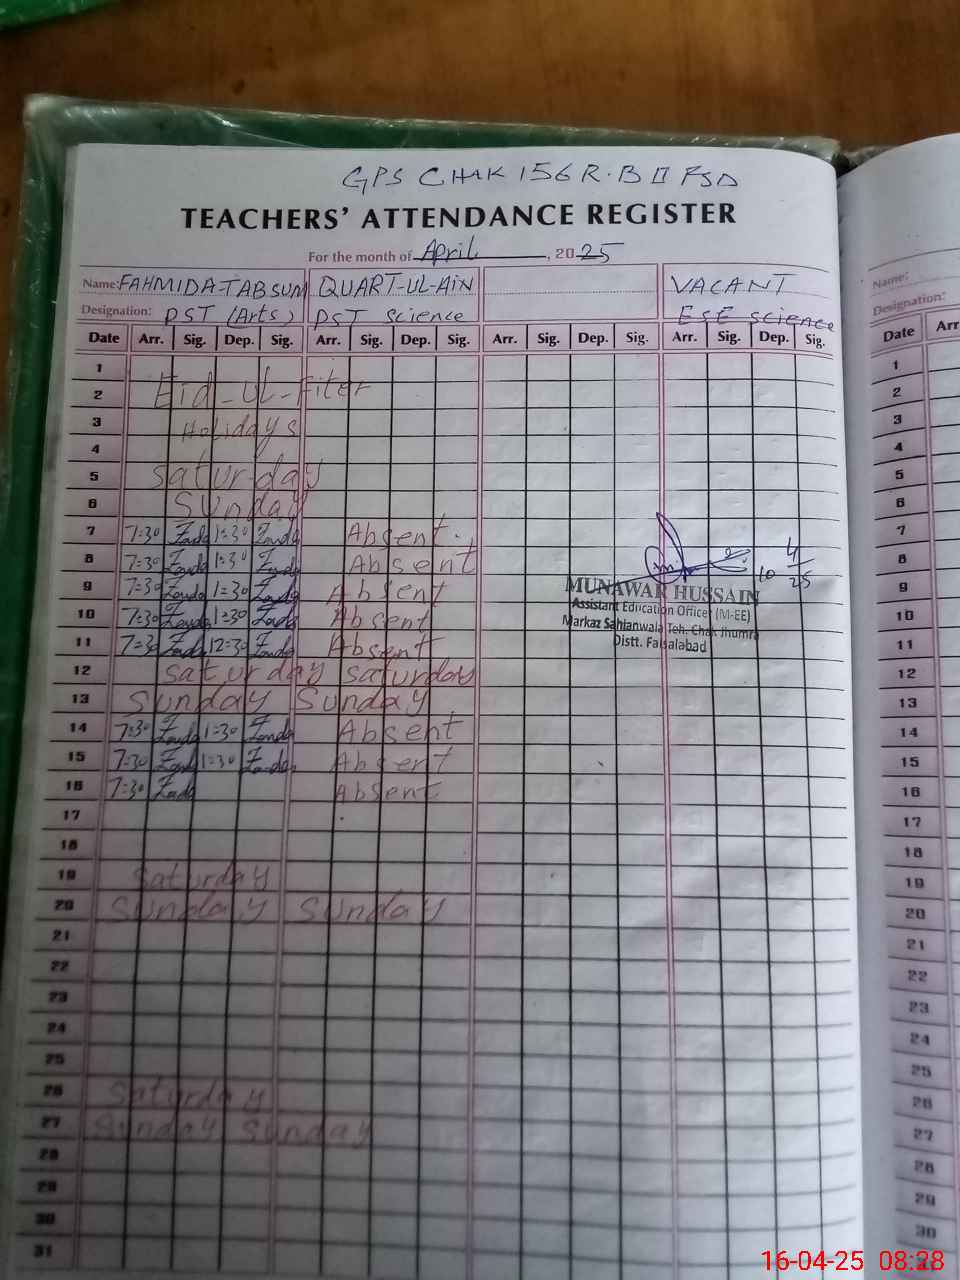 GPS CHAK 156 R.B II FSD
TEACHERS' ATTENDANCE REGISTER
For the month of April, 2025
Name: FAHMIDA-TABSUM QUART-UL-AIN VACANT
Designation: PST (Arts) PST Science ESE Science
Date Arr. Sig. Dep. Sig. Arr. Sig. Dep. Sig. Arr. Sig. Dep. Sig. Arr. Sig. Dep. Sig.
1
2 Eid-ul-Fiter
3 Holidays
4
5 Saturday
6 Sunday
7 7=30 1=30 Absent.
8 7=30 1=30 Absent
9 7=30 1=30 Absent
10 7=30 1=30 Absent
11 7=30 12=30 Absent
12 Saturday Saturday
13 Sunday Sunday
14 7=30 1=30 Absent
15 7=30 1=30 Absent
16 7=30 Absent
17
18
19 Saturday
20 Sunday Sunday
21
22
23
24
25
26 Saturday
27 Sunday Sunday
28
29
30
31
10 4/25
MUNAWAR HUSSAIN
Assistant Education Officer (M-EE)
Markaz Sahianwala Teh. Chak Jhumra
Distt. Faisalabad
Name:
Designation:
Date Arr
1
2
3
4
5
6
7
8
9
10
11
12
13
14
15
16
17
18
19
20
21
22
23
24
25
26
27
28
29
30
16-04-25 08:28